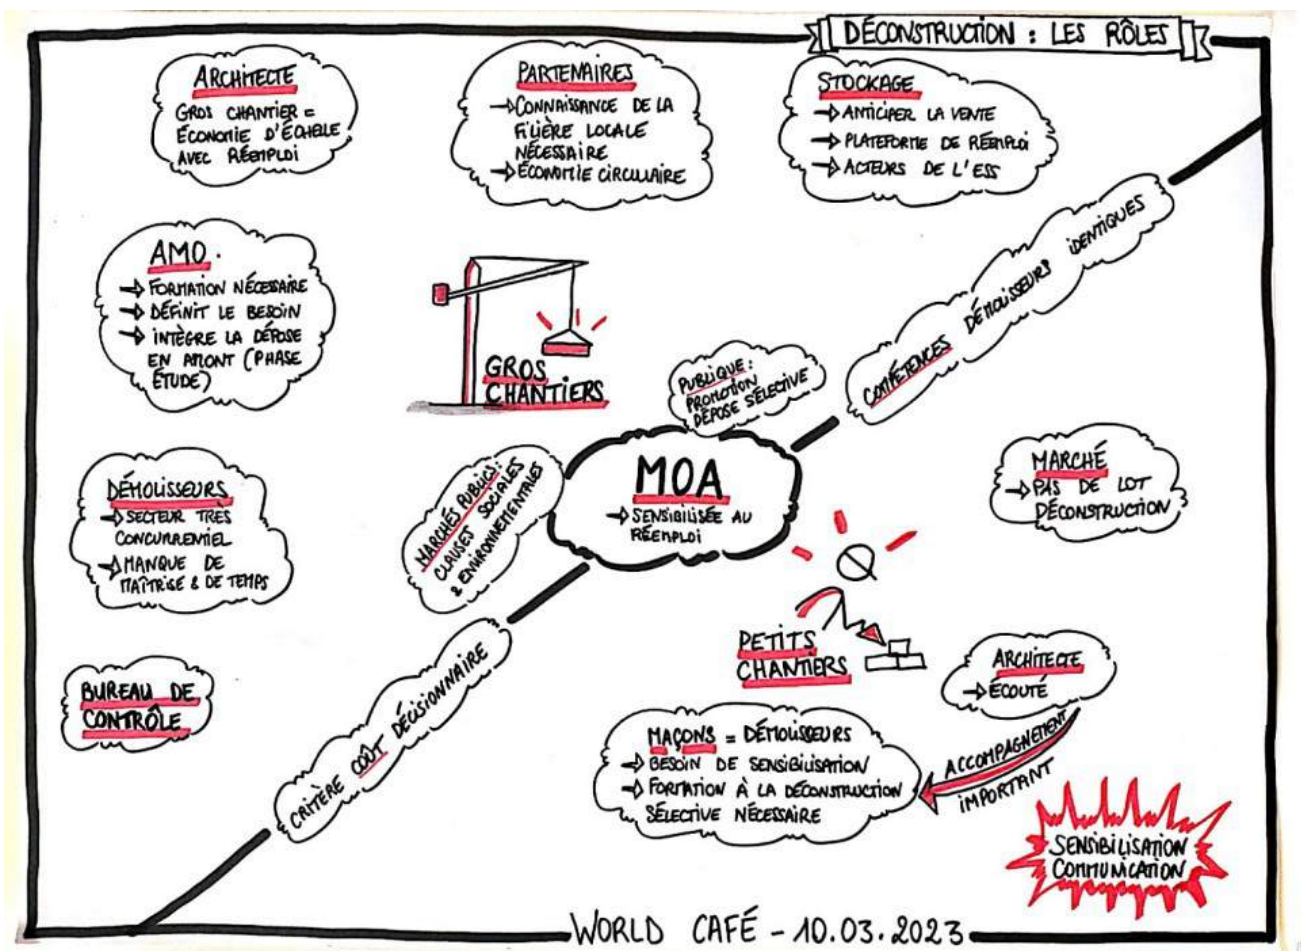 DÉCONSTRUCTION : LES RÔLES
ARCHITECTE
GROS CHANTIER =
ÉCONOMIE D'ÉCHELLE
AVEC RÉEMPLOI
PARTENAIRES
→ CONNAISSANCE DE LA
FILIÈRE LOCALE
NÉCESSAIRE
→ ÉCONOMIE CIRCULAIRE
STOCKAGE
→ ANTICIPER LA VENTE
→ PLATEFORME DE RÉEMPLOI
→ ACTEURS DE L'ESS
AMO.
→ FORMATION NÉCESSAIRE
→ DÉFINIT LE BESOIN
→ INTÈGRE LA DÉPOSE
EN AMONT (PHASE
ÉTUDE)
GROS
CHANTIERS
PUBLIQUE :
PROMOTION
DÉPOSE SÉLECTIVE
COMPÉTENCES DÉMOLISSEURS IDENTIQUES
DÉMOLISSEURS
→ SECTEUR TRÈS
CONCURRENTIEL
→ MANQUE DE
MAÎTRISE & DE TEMPS
MARCHÉS PUBLICS :
CLAUSES SOCIALES
& ENVIRONNEMENTALES
MOA
→ SENSIBILISÉE AU
RÉEMPLOI
MARCHÉ
→ PAS DE LOT
DÉCONSTRUCTION
BUREAU DE
CONTRÔLE
CRITÈRE COÛT DÉCISIONNAIRE
PETITS
CHANTIERS
ARCHITECTE
→ ÉCOUTÉ
MAÇONS = DÉMOLISSEURS
→ BESOIN DE SENSIBILISATION
→ FORMATION À LA DÉCONSTRUCTION
SÉLECTIVE NÉCESSAIRE
ACCOMPAGNEMENT
IMPORTANT
SENSIBILISATION
COMMUNICATION
WORLD CAFÉ - 10.03.2023